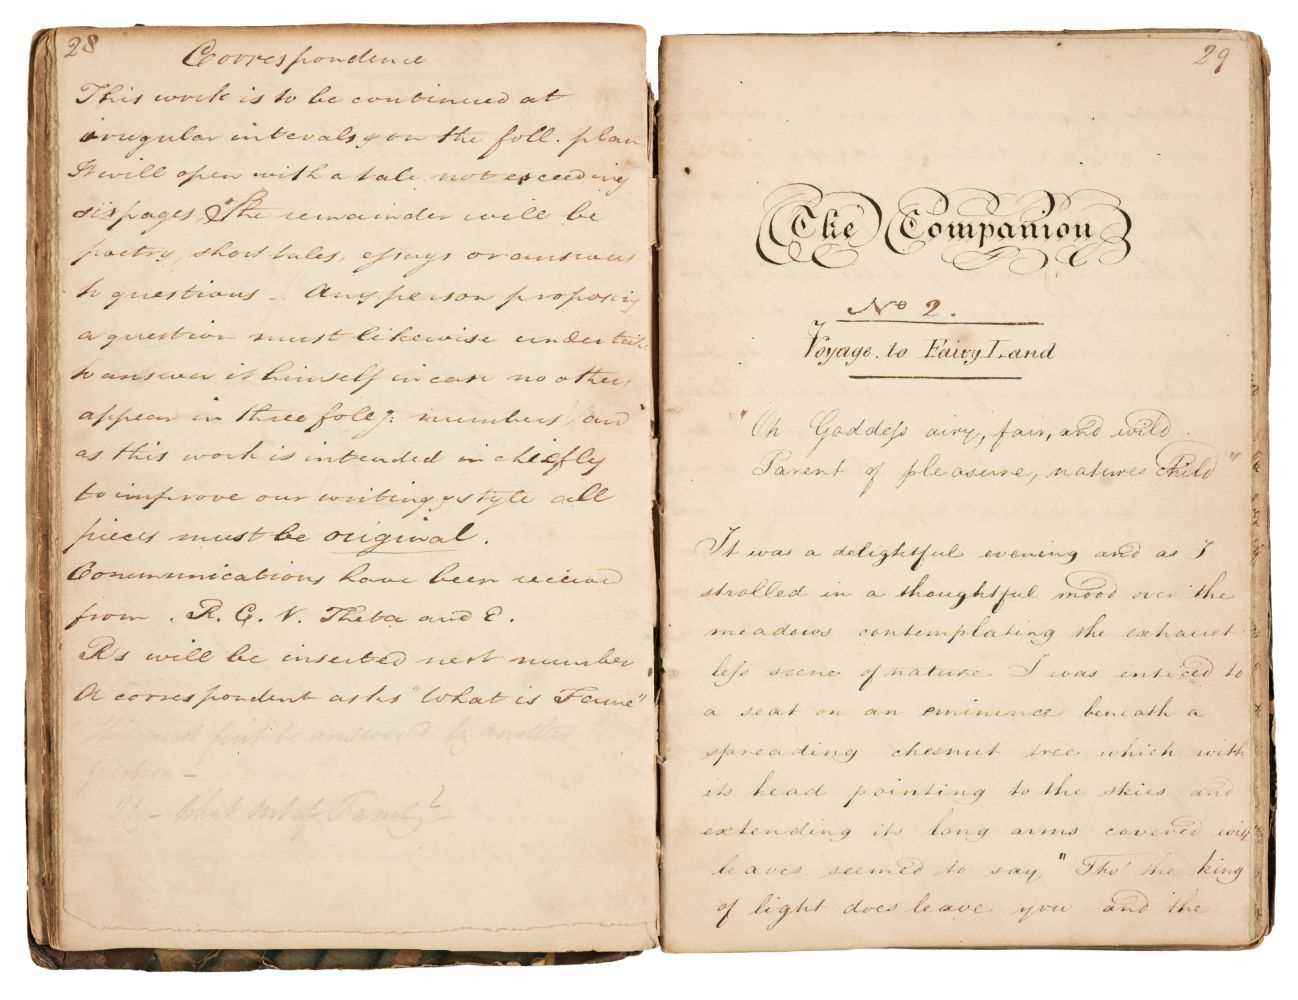 28
Correspondence
This work is to be continued at
irregular intervals, & on the foll. plan
It will open with a tale not exceeding
six pages, The remainder will be
poetry, short tales, essays or answers
to questions – Any person proposing
a question must likewise undertake
to answer it himself in case no other
appear in three follg: numbers, and
as this work is intended in chiefly
to improve our writing & style all
pieces must be original.
Communications have been recieved
from . R. G. V. Theba and E.
R's will be inserted next number
A correspondent asks "What is Fame"
this must first be answered by another
question –
is – What sort of Fame? –
29
The Companion
No 2.
Voyage to Fairy Land
"Oh Goddess airy, fair, and wild
Parent of pleasure, natures child"
It was a delightful evening and as I
strolled in a thoughtful mood over the
meadows contemplating the exhaust
less scene of nature I was enticed to
a seat on an eminence beneath a
spreading chesnut tree which with
its head pointing to the skies and
extending its long arms covered with
leaves seemed to say, "Tho' the king
of light does leave you and the